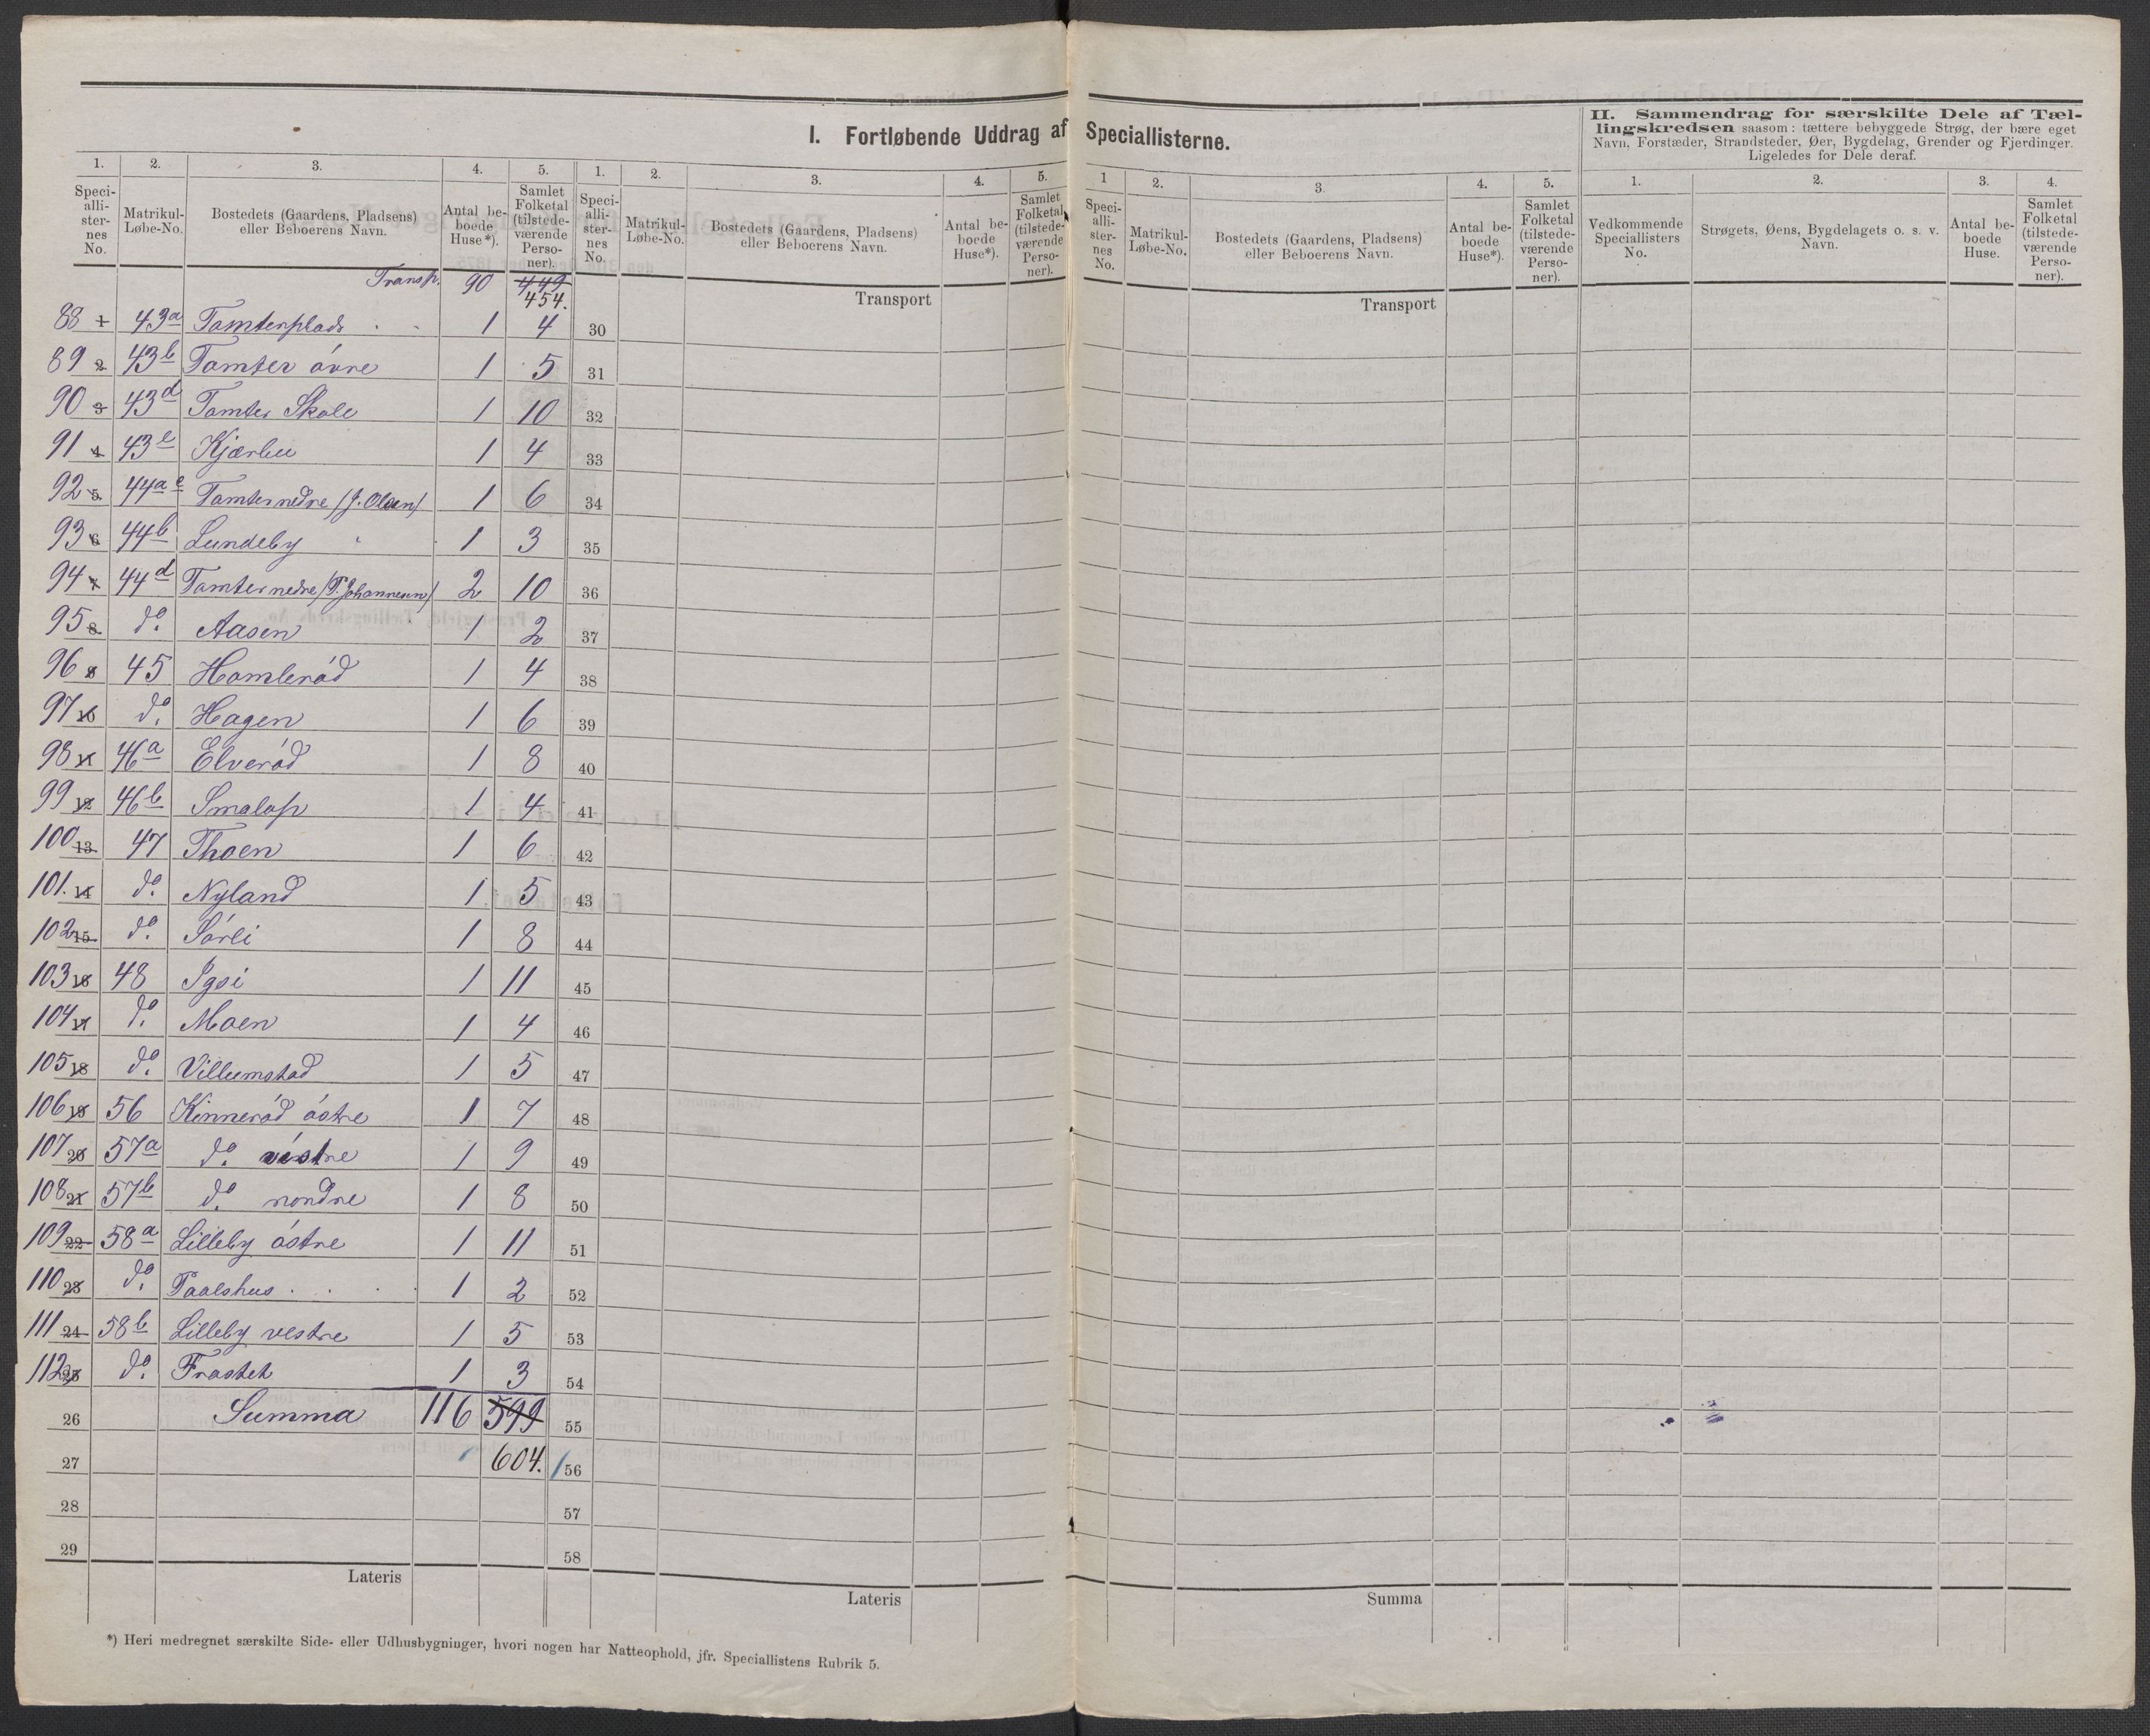 I. Fortløbende Uddrag af Speciallisterne.
II. Sammendrag for særskilte Dele af Tæl-
lingskredsen saasom: tættere bebyggede Strøg, der bære eget
Navn, Forstæder, Strandsteder, Øer, Bygdelag, Grender og Fjerdinger.
Ligeledes for Dele deraf.
1. 2. 3. 4. 5. 1. 2. 3. 4. 5. 1 2. 3. 4. 5. 1. 2. 3. 4.
Speci-alli-ster-nes No. Matrikul-Løbe-No. Bostedets (Gaardens, Pladsens) eller Beboerens Navn. Antal be-boede Huse*). Samlet Folketal (tilstede-værende Perso-ner).
Speci-alli-ster-nes No. Matrikul-Løbe-No. Bostedets (Gaardens, Pladsens) eller Beboerens Navn. Antal be-boede Huse*). Samlet Folketal (tilstede-værende Perso-ner).
Speci-alli-ster-nes No. Matrikul-Løbe-No. Bostedets (Gaardens, Pladsens) eller Beboerens Navn. Antal be-boede Huse*). Samlet Folketal (tilstede-værende Perso-ner).
Vedkommende Speciallisters No. Strøgets, Øens, Bygdelagets o. s. v. Navn. Antal be-boede Huse. Samlet Folketal (tilstede-værende Perso-ner).
Transp. 90 449
454. Transport Transport
88 1 43a Tomterplads 1 4 30
89 2 43b Tomter óvre 1 5 31
90 3 43d Tomter Skole 1 10 32
91 4 43e Kjærbu 1 4 33
92 5 44a e Tomter nedre (J. Olsen) 1 6 34
93 6 44b Lundeby 1 3 35
94 7 44d Tomter nedre (P. Johannesen) 2 10 36
95 8 do. Aasen 1 2 37
96 9 45 Homleród 1 4 38
97 10 do. Hagen 1 6 39
98 11 46a Elveród 1 8 40
99 12 46b Smalop 1 4 41
100 13 47 Thoen 1 6 42
101. 14 do. Nyland 1 5 43
102 15 do. Sórli 1 8 44
103 16 48 Igsi 1 11 45
104 17 do. Moen 1 4 46
105 18 do. Villumstad 1 5 47
106 19 56 Kinneród óstre 1 7 48
107 20 57a do. vestre 1 9 49
108 21 57b do. nondre 1 8 50
109 22 58a Lilleby óstre 1 11 51
110 23 do. Paalshus 1 2 52
111 24 58b Lilleby vestre 1 5 53
112 25 do. Frastet 1 3 54
26 Summa 116 599 55
27 604. 56
28 57
29 58
Lateris Lateris Summa
*) Heri medregnet særskilte Side- eller Udhusbygninger, hvori nogen har Natteophold, jfr. Speciallistens Rubrik 5.